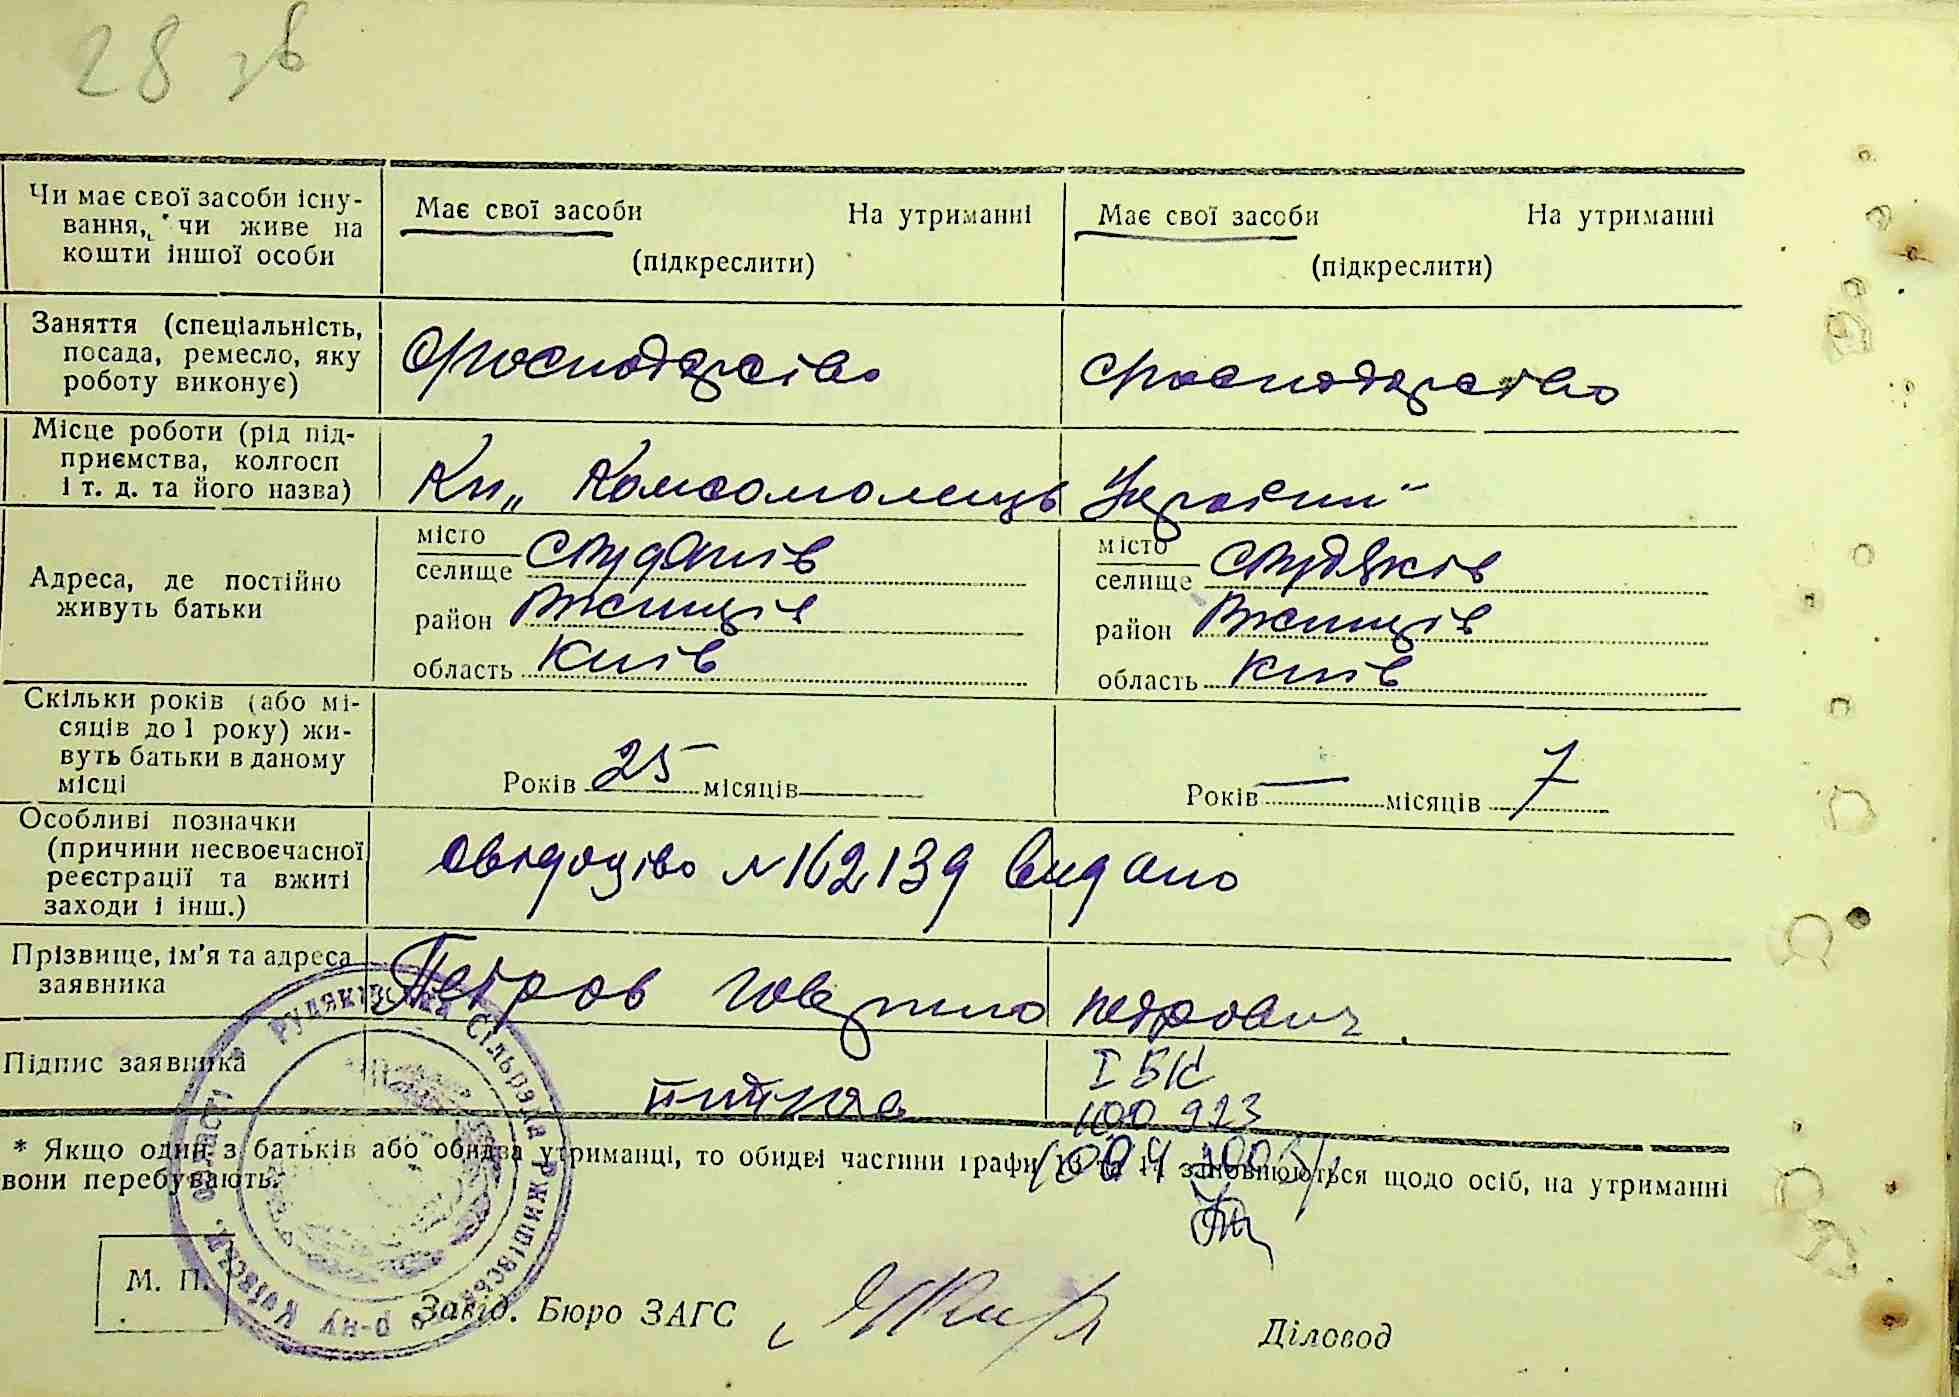 28 зв
Чи має свої засоби існу-
вання, чи живе на
кошти іншої особи
Має свої засоби На утриманні
(підкреслити)
Має свої засоби На утриманні
(підкреслити)
Заняття (спеціальність,
посада, ремесло, яку
роботу виконує)
господарство
господарство
Місце роботи (рід під-
приємства, колгосп
і т. д. та його назва)
Кп „ Комсомолець України"
Адреса, де постійно
живуть батьки
місто
селище
район Ржищів
область Київ
місто
селище
район Ржищів
область Київ
Скільки років (або мі-
сяців до 1 року) жи-
вуть батьки в даному
місці
Років 25 місяців
Років — місяців 7
Особливі позначки
(причини несвоєчасної
реєстрації та вжиті
заходи і інш.)
свідоцтво №162139 видано
Прізвище, ім'я та адреса
заявника
Петров Гаврило Петрович
Підпис заявника
І БК
100 923
* Якщо один з батьків або обидва утриманці, то обидві частини графи та заповнюються щодо осіб, на утриманні
вони перебувають.
Рудяківська сільрада Ржищівського р-ну Київської області
М. П.
Завід. Бюро ЗАГС
Діловод